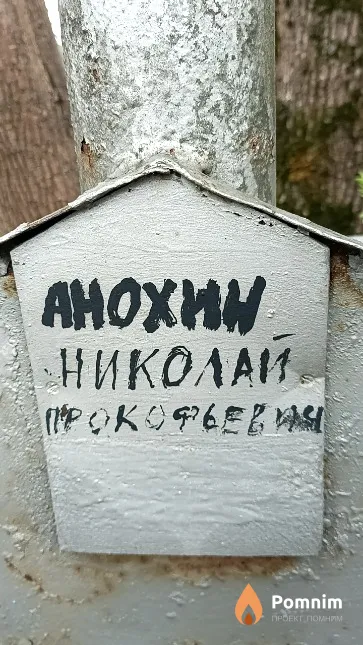 АНОХИН
НИКОЛАЙ
ПРОКОФЬЕВИЧ
Pomnim
ПРОЕКТ ПОМНИМ